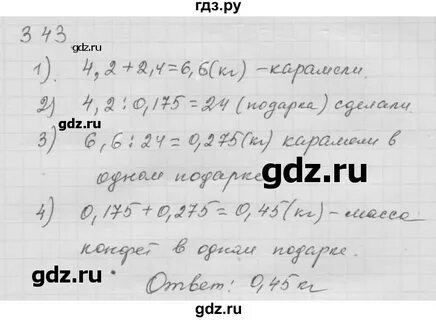 гдз.ру
343
1). 4,2+2,4=6,6(кг) -карамели.
2) 4,2:0,175=24 (подарка) сделали
3) 6,6:24=0,275(кг) карамели в
одном подарке
gdz.ru
4) 0,175+0,275=0,45(кг)-масса
конфет в одном подарке.
gdz.ru
gdz.ru
Ответ: 0,45кг